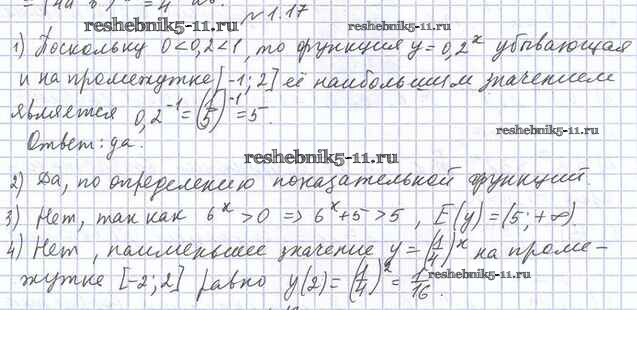 № 1.17
reshebnik5-11.ru
reshebnik5-11.ru
1) Поскольку 0<0,2<1, то функция y=0,2^x убывающая
и на промежутке [-1; 2] её наибольшим значением
является 0,2^-1=(1/5)^-1=5.
reshebnik5-11.ru
Ответ: да.
reshebnik5-11.ru
2) Да, по определению показательной функций.
3) Нет, так как 6^x>0 => 6^x+5>5, E(y)=(5;+∞).
4) Нет, наименьшее значение y=(1/4)^x на проме-
reshebnik5-11.ru
жутке [-2; 2] равно y(2)=(1/4)^2=1/16.
reshebnik5-11.ru